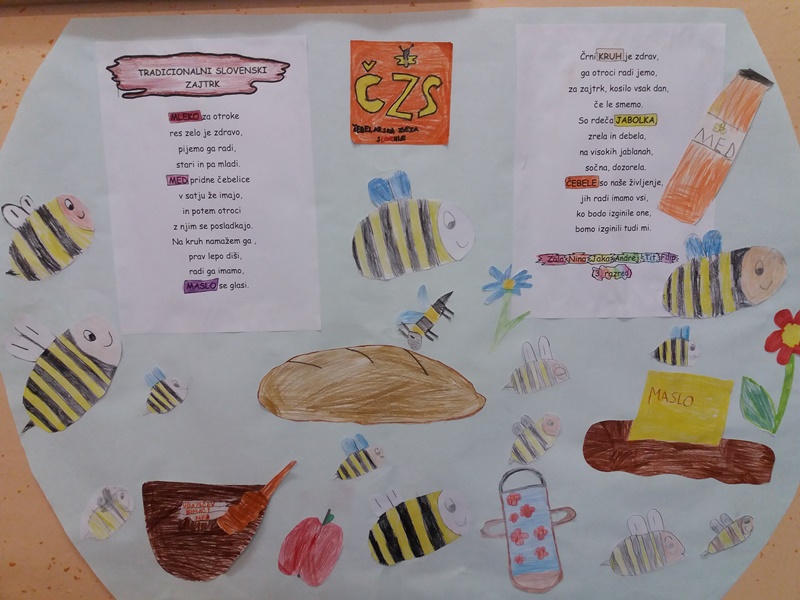 TRADICIONALNI SLOVENSKI
ZAJTRK
MLEKO za otroke
res zelo je zdravo,
pijemo ga radi,
stari in pa mladi.
MED pridne čebelice
v satju že imajo,
in potem otroci
z njim se posladkajo.
Na kruh namažem ga ,
prav lepo diši,
radi ga imamo,
MASLO se glasi.
ČZS
ČEBELARSKA ZVEZA
SLOVENIJE
Črni KRUH je zdrav,
ga otroci radi jemo,
za zajtrk, kosilo vsak dan,
če le smemo.
So rdeča JABOLKA,
zrela in debela,
na visokih jablanah,
sočna, dozorela.
ČEBELE so naše življenje,
jih radi imamo vsi,
ko bodo izginile one,
bomo izginili tudi mi.
Zala, Nina, Jaka, Andrej, Tit, Filip,
3. razred
MED
MASLO